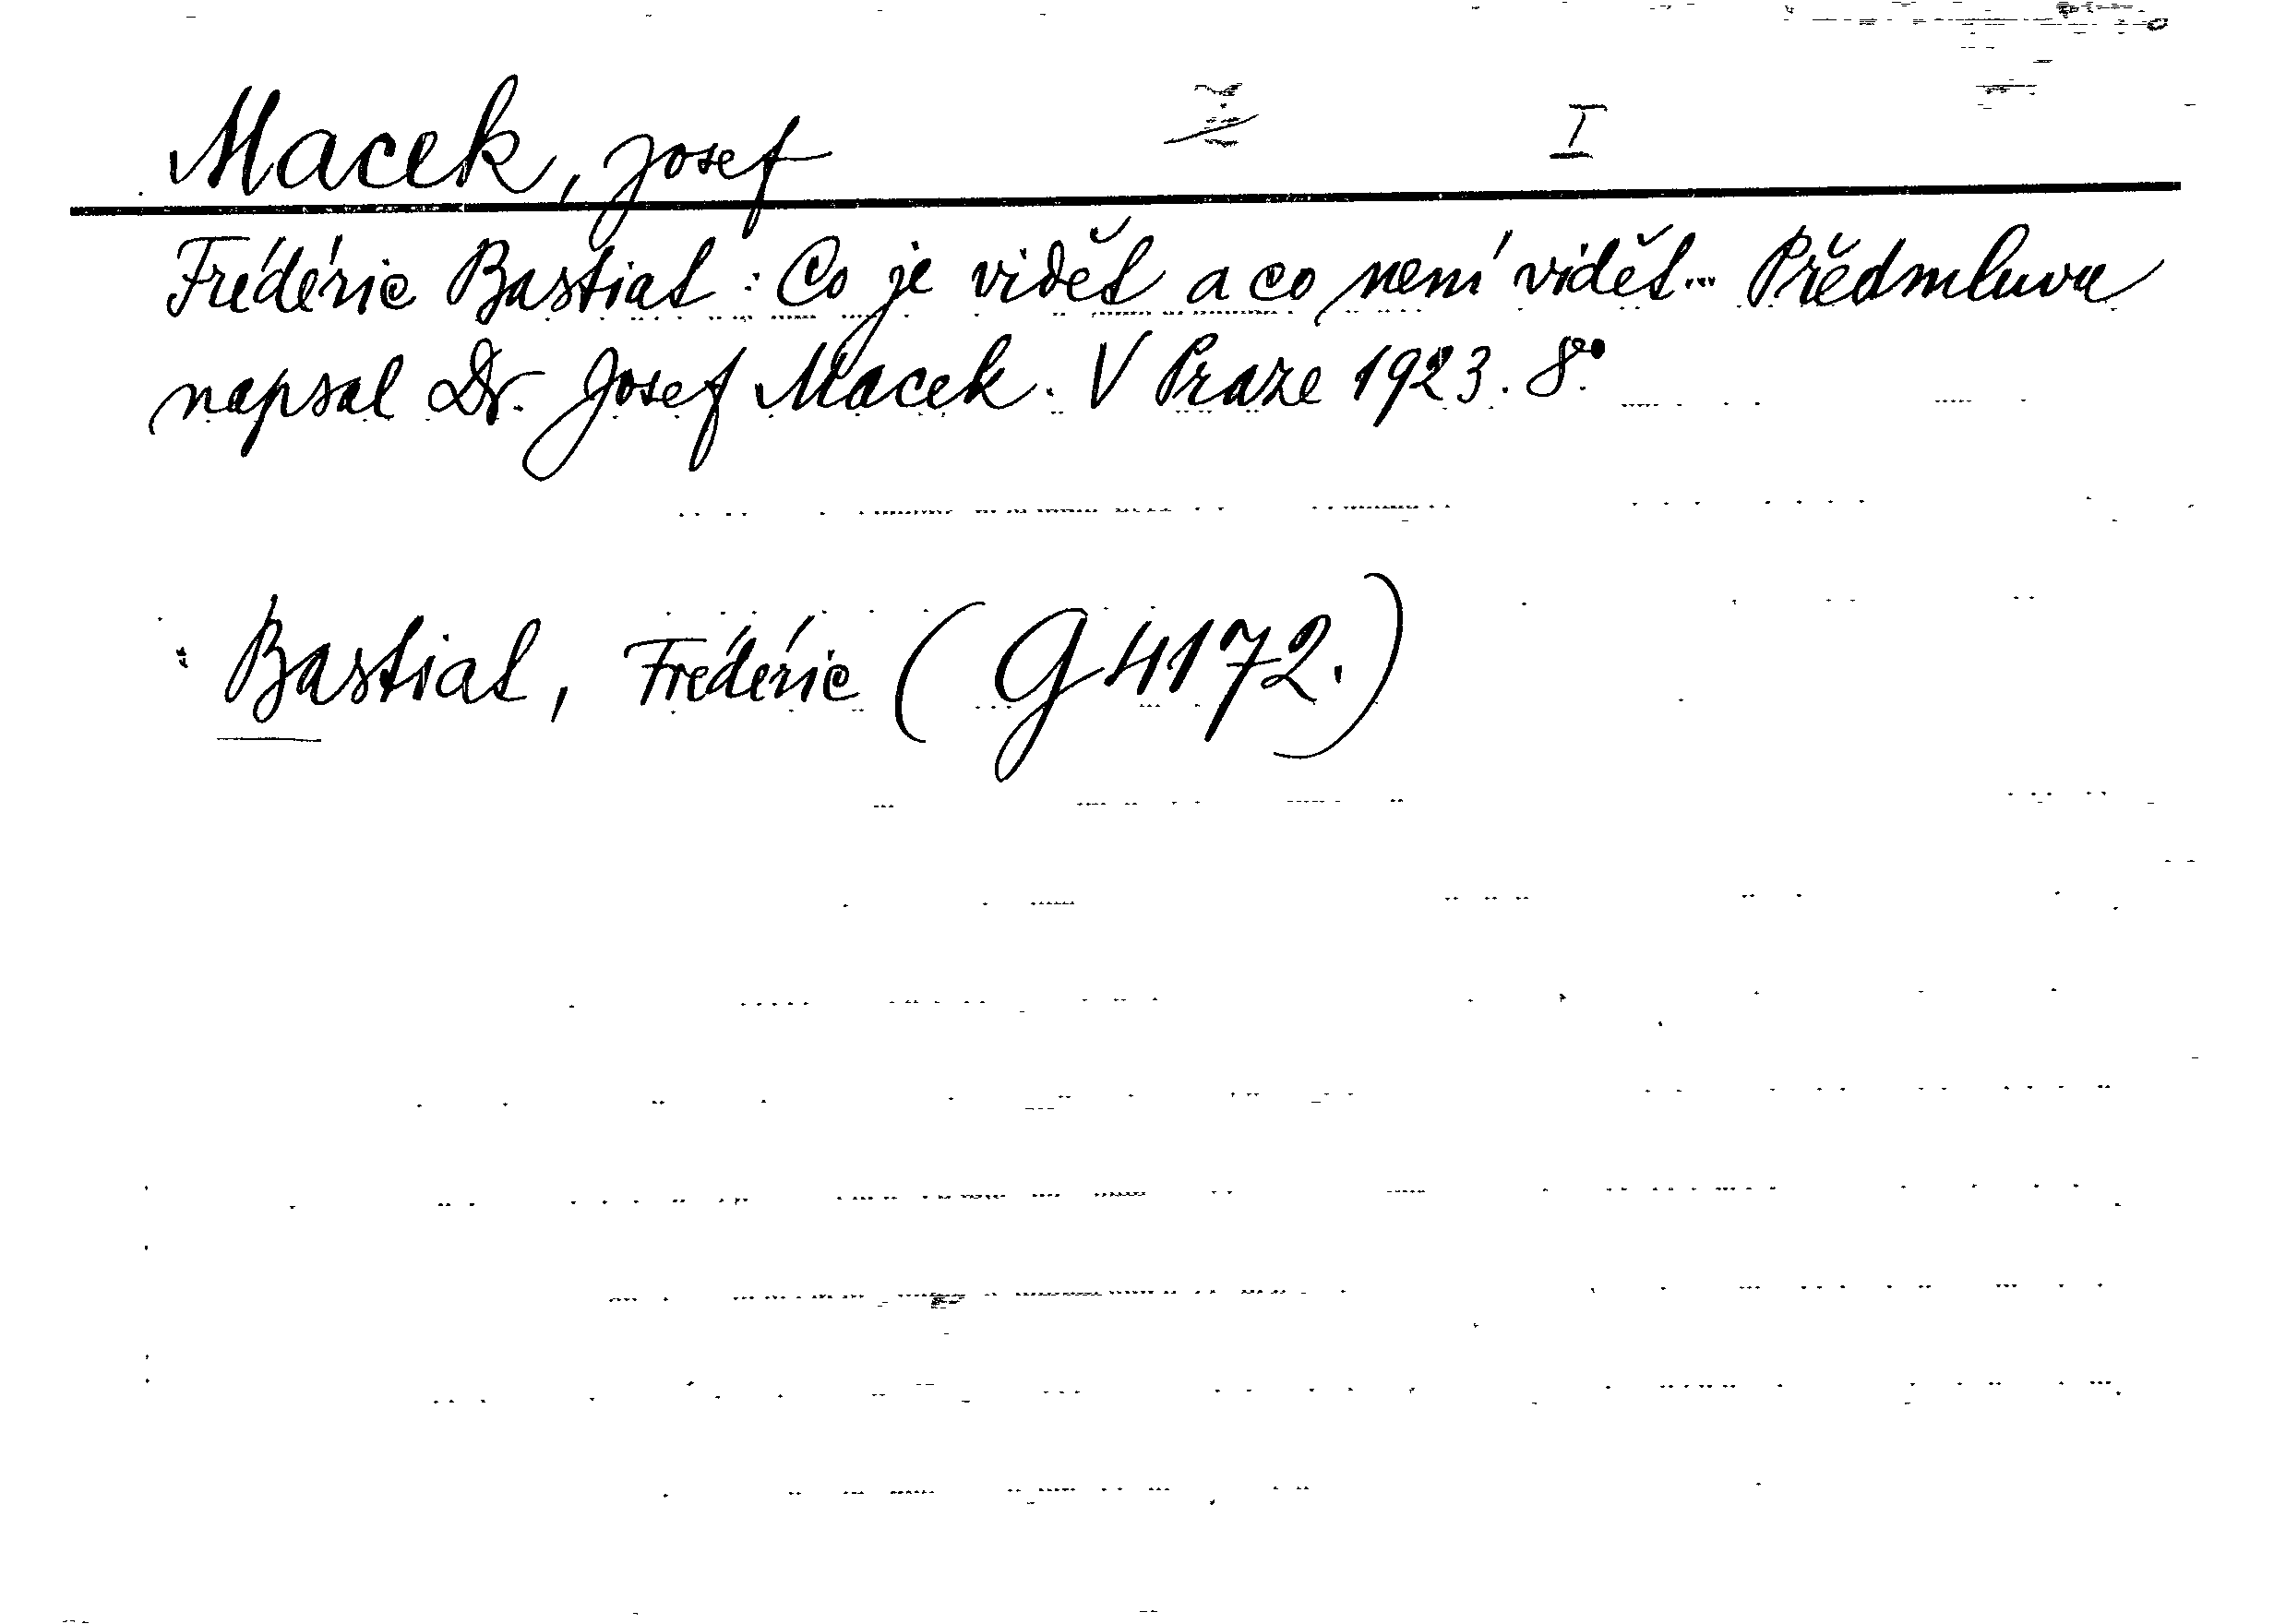 Macek, Josef I
Frédéric Bastiat: Co je vidět a co není vidět... Předmluvu
napsal Dr. Josef Macek. V Praze 1923. 8°.
Bastiat, Frédéric (G 4172.)